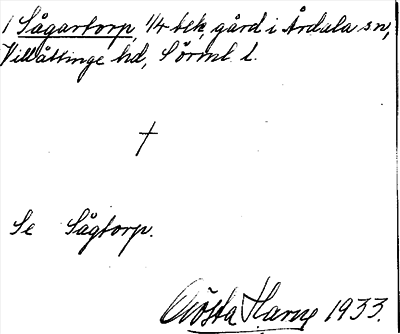 1 Sågartorp, 1/4 bek. gård i Årdala sn,
Villåttinge hd, Sörml. l.
†
Se Sågtorp.
Gösta Harne 1933.